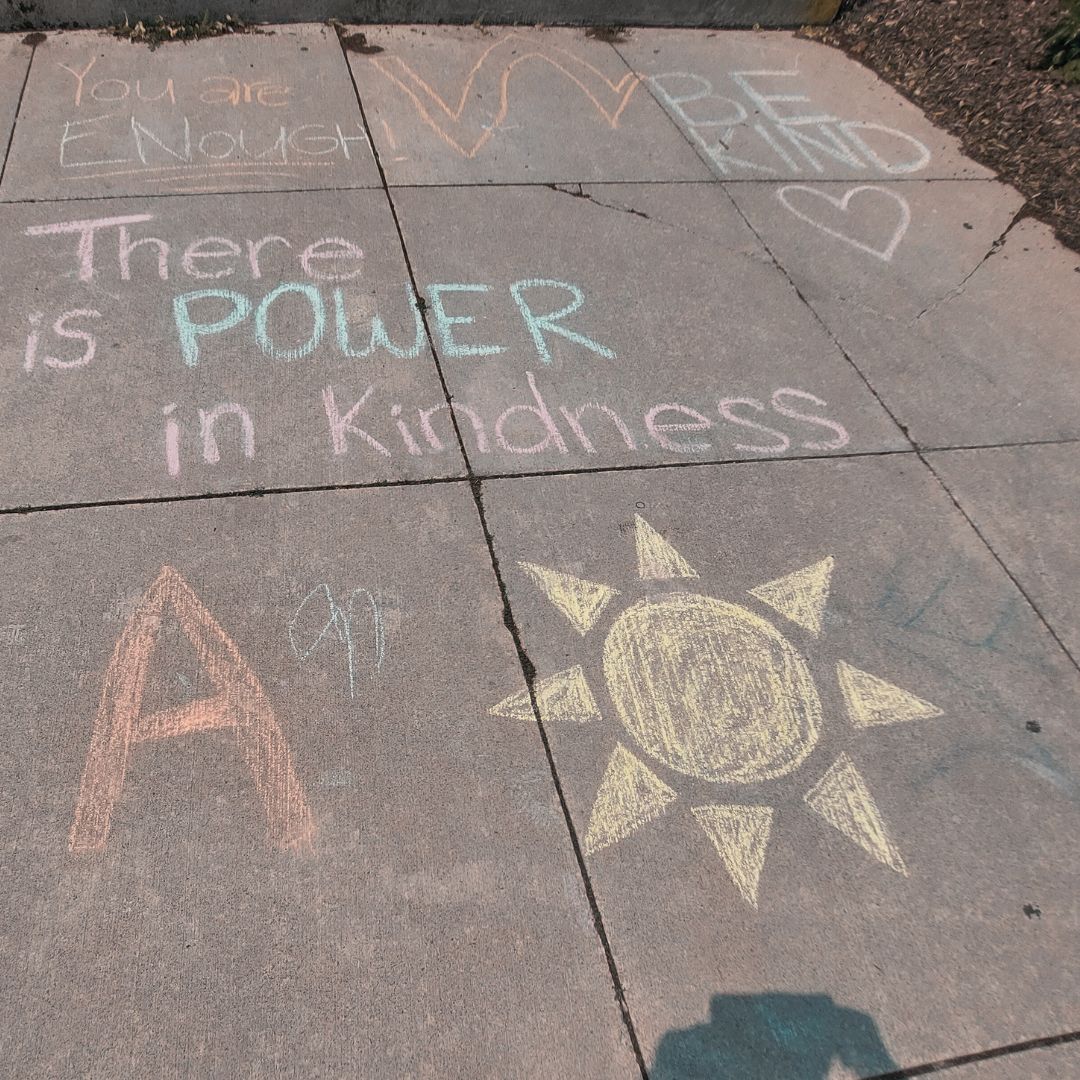 You are
ENOUGH!
BE
KIND
There
is POWER
in Kindness
A